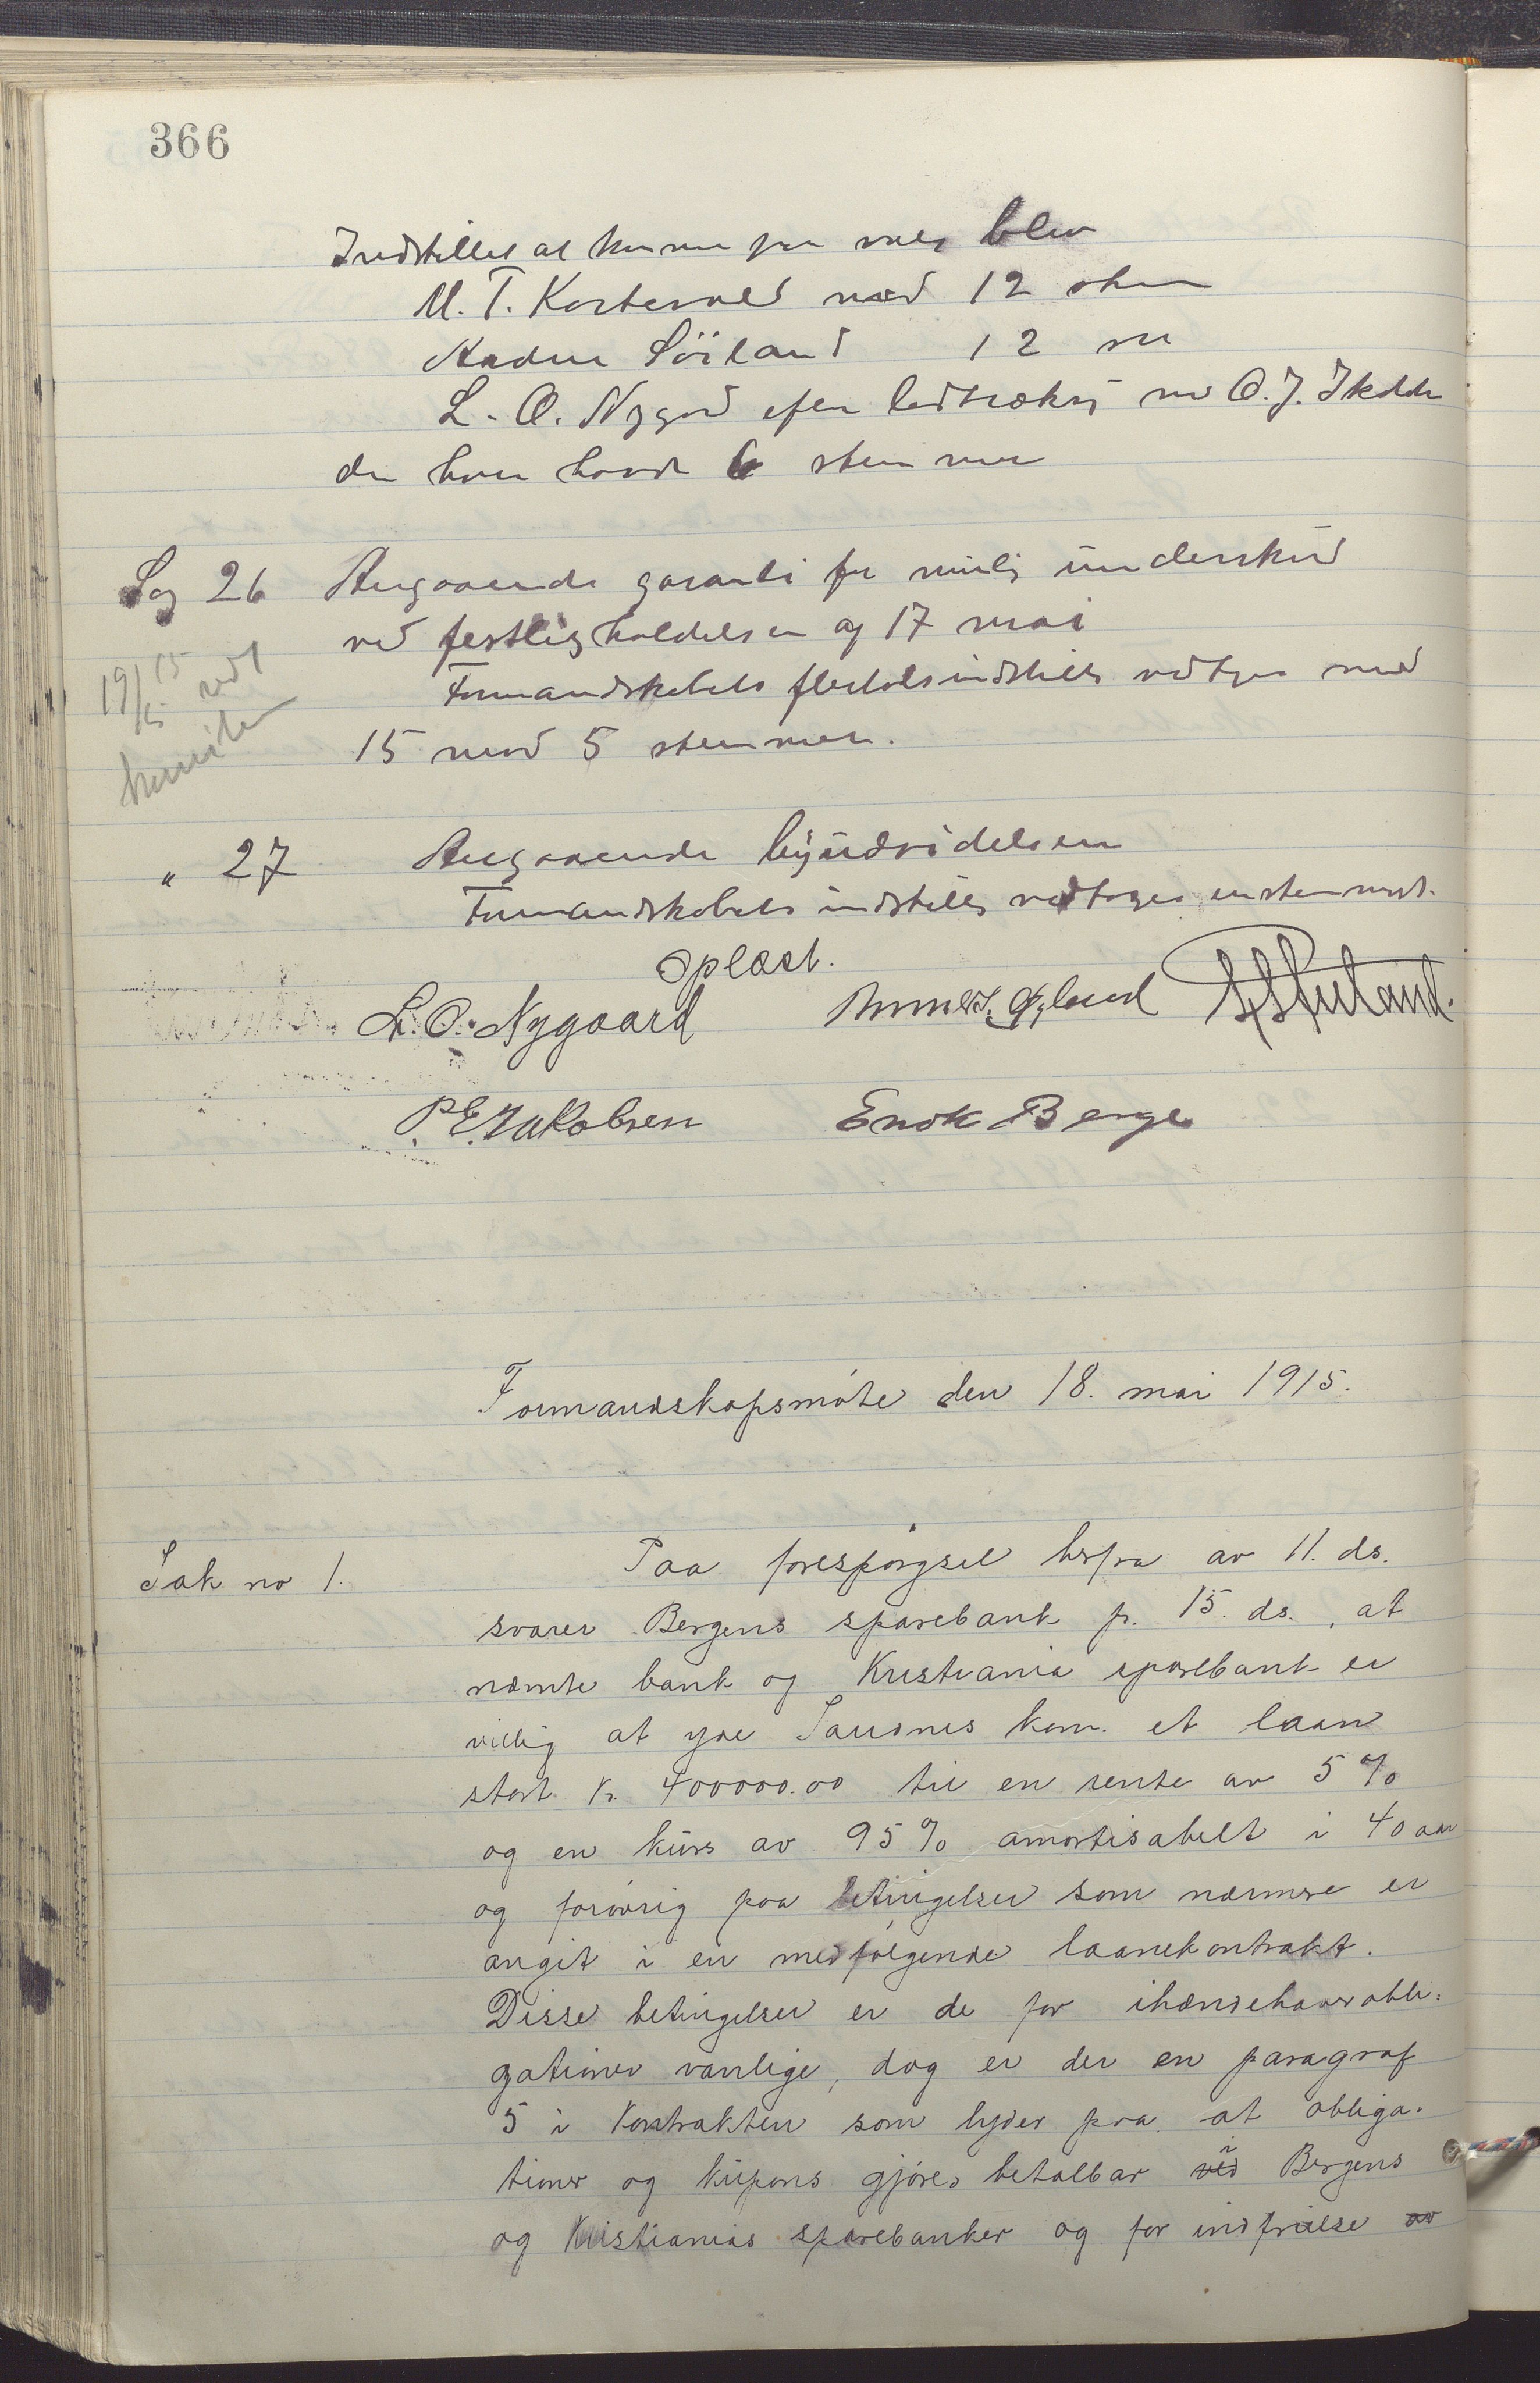 366
Indstillet at kunne blev
M. T. Kartevold med 12 stem
Aadne Söiland 12 "
L. O. Nygård efter lodtrækn med O. J.
der hver havde 6 stemmer
Sag 26 Angaaende garanti for mulig underskud
ved festligholdelsen af 17 mai
Formandskabets flertalsindstilln vedtoges med
15 mod 5 stemmer.
19/5 15 uds
" 27 Angaaende byudvidelsen
Formandskabets indstilln vedtoges enstemmigt.
Oplæst.
L. O. Nygaard
P. E. Jakobsen Enok Berge
Formandskapsmöte den 18. mai 1915.
Sak no 1. Paa forespörgsel herfra av 11. ds.
svarer Bergens sparebank pr. 15. ds., at
nævnte bank og Kristiania sparebank er
villig at yde Sandnes kom. et laan
stort kr. 400000.00 til en rente av 5%
og en kurs av 95% amortisabelt i 40 aar
og forövrig paa betingelser som nærmere er
angit i en medfölgende laanekontrakt.
Disse betingelser er de for ihændehaverobli-
gationer vanlige, dog er der en paragraf
5 i kontrakten som lyder paa at obliga-
tioner og kupons gjöres betalbar ved i Bergens
og Kristianias sparebanker og for indfrielse av